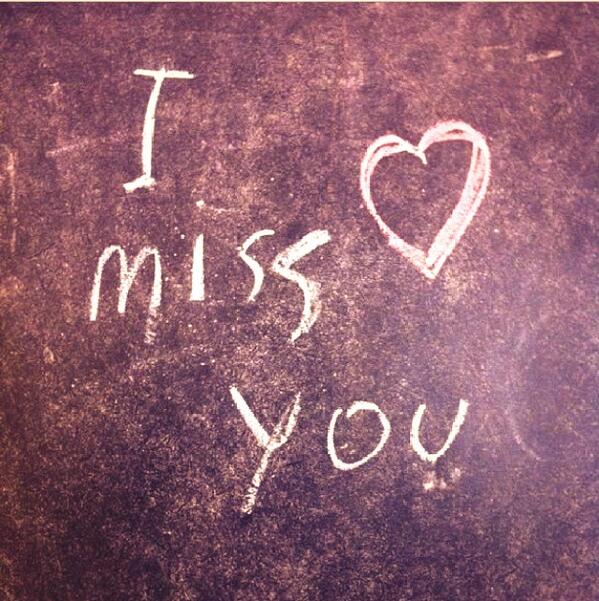 I
miss
you